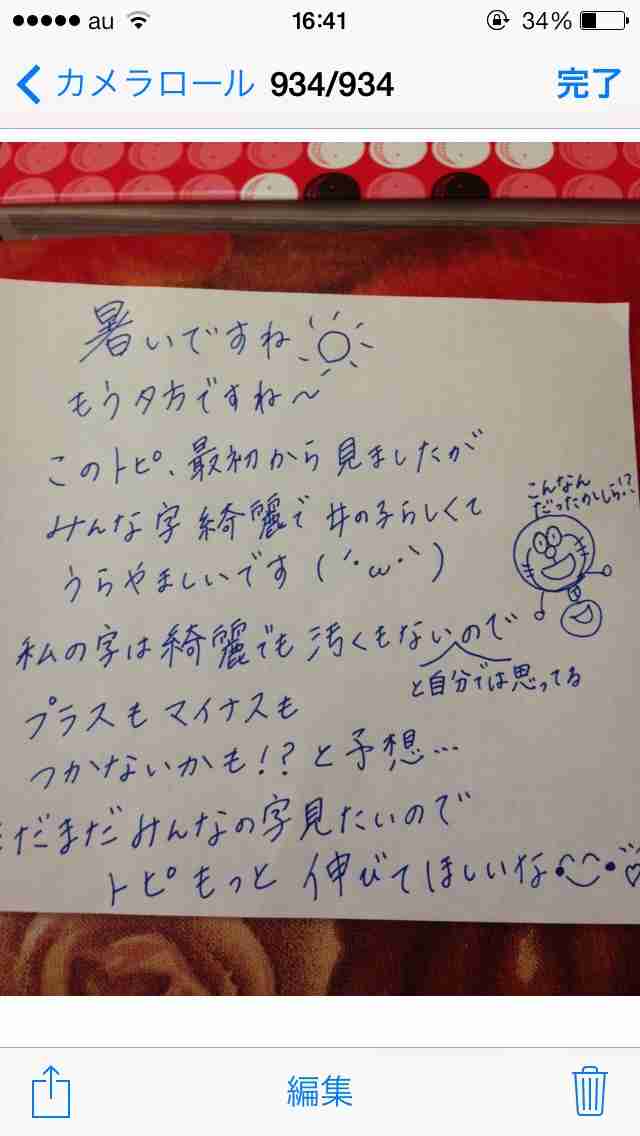 au 16:41 34%
カメラロール 934/934 完了
暑いですね
もう夕方ですね〜
このトピ、最初から見ましたが
みんな字綺麗で女の子らしくて
うらやましいです(´・ω・`)
こんなん
だったかしら!?
私の字は綺麗でも汚くもないので
と自分では思ってる
プラスもマイナスも
つかないかも!?と予想…
まだまだみんなの字見たいので
トピもっと伸びてほしいな
編集